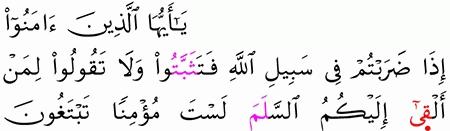 يَـٰٓأَيُّهَا ٱلَّذِينَ ءَامَنُوٓا۟
إِذَا ضَرَبْتُمْ فِى سَبِيلِ ٱللَّهِ فَتَثَبَّتُوا۟ وَلَا تَقُولُوا۟ لِمَنْ
أَلْقِىٰٓ إِلَيْكُمُ ٱلسَّلَمَ لَسْتَ مُؤْمِنًا تَبْتَغُونَ